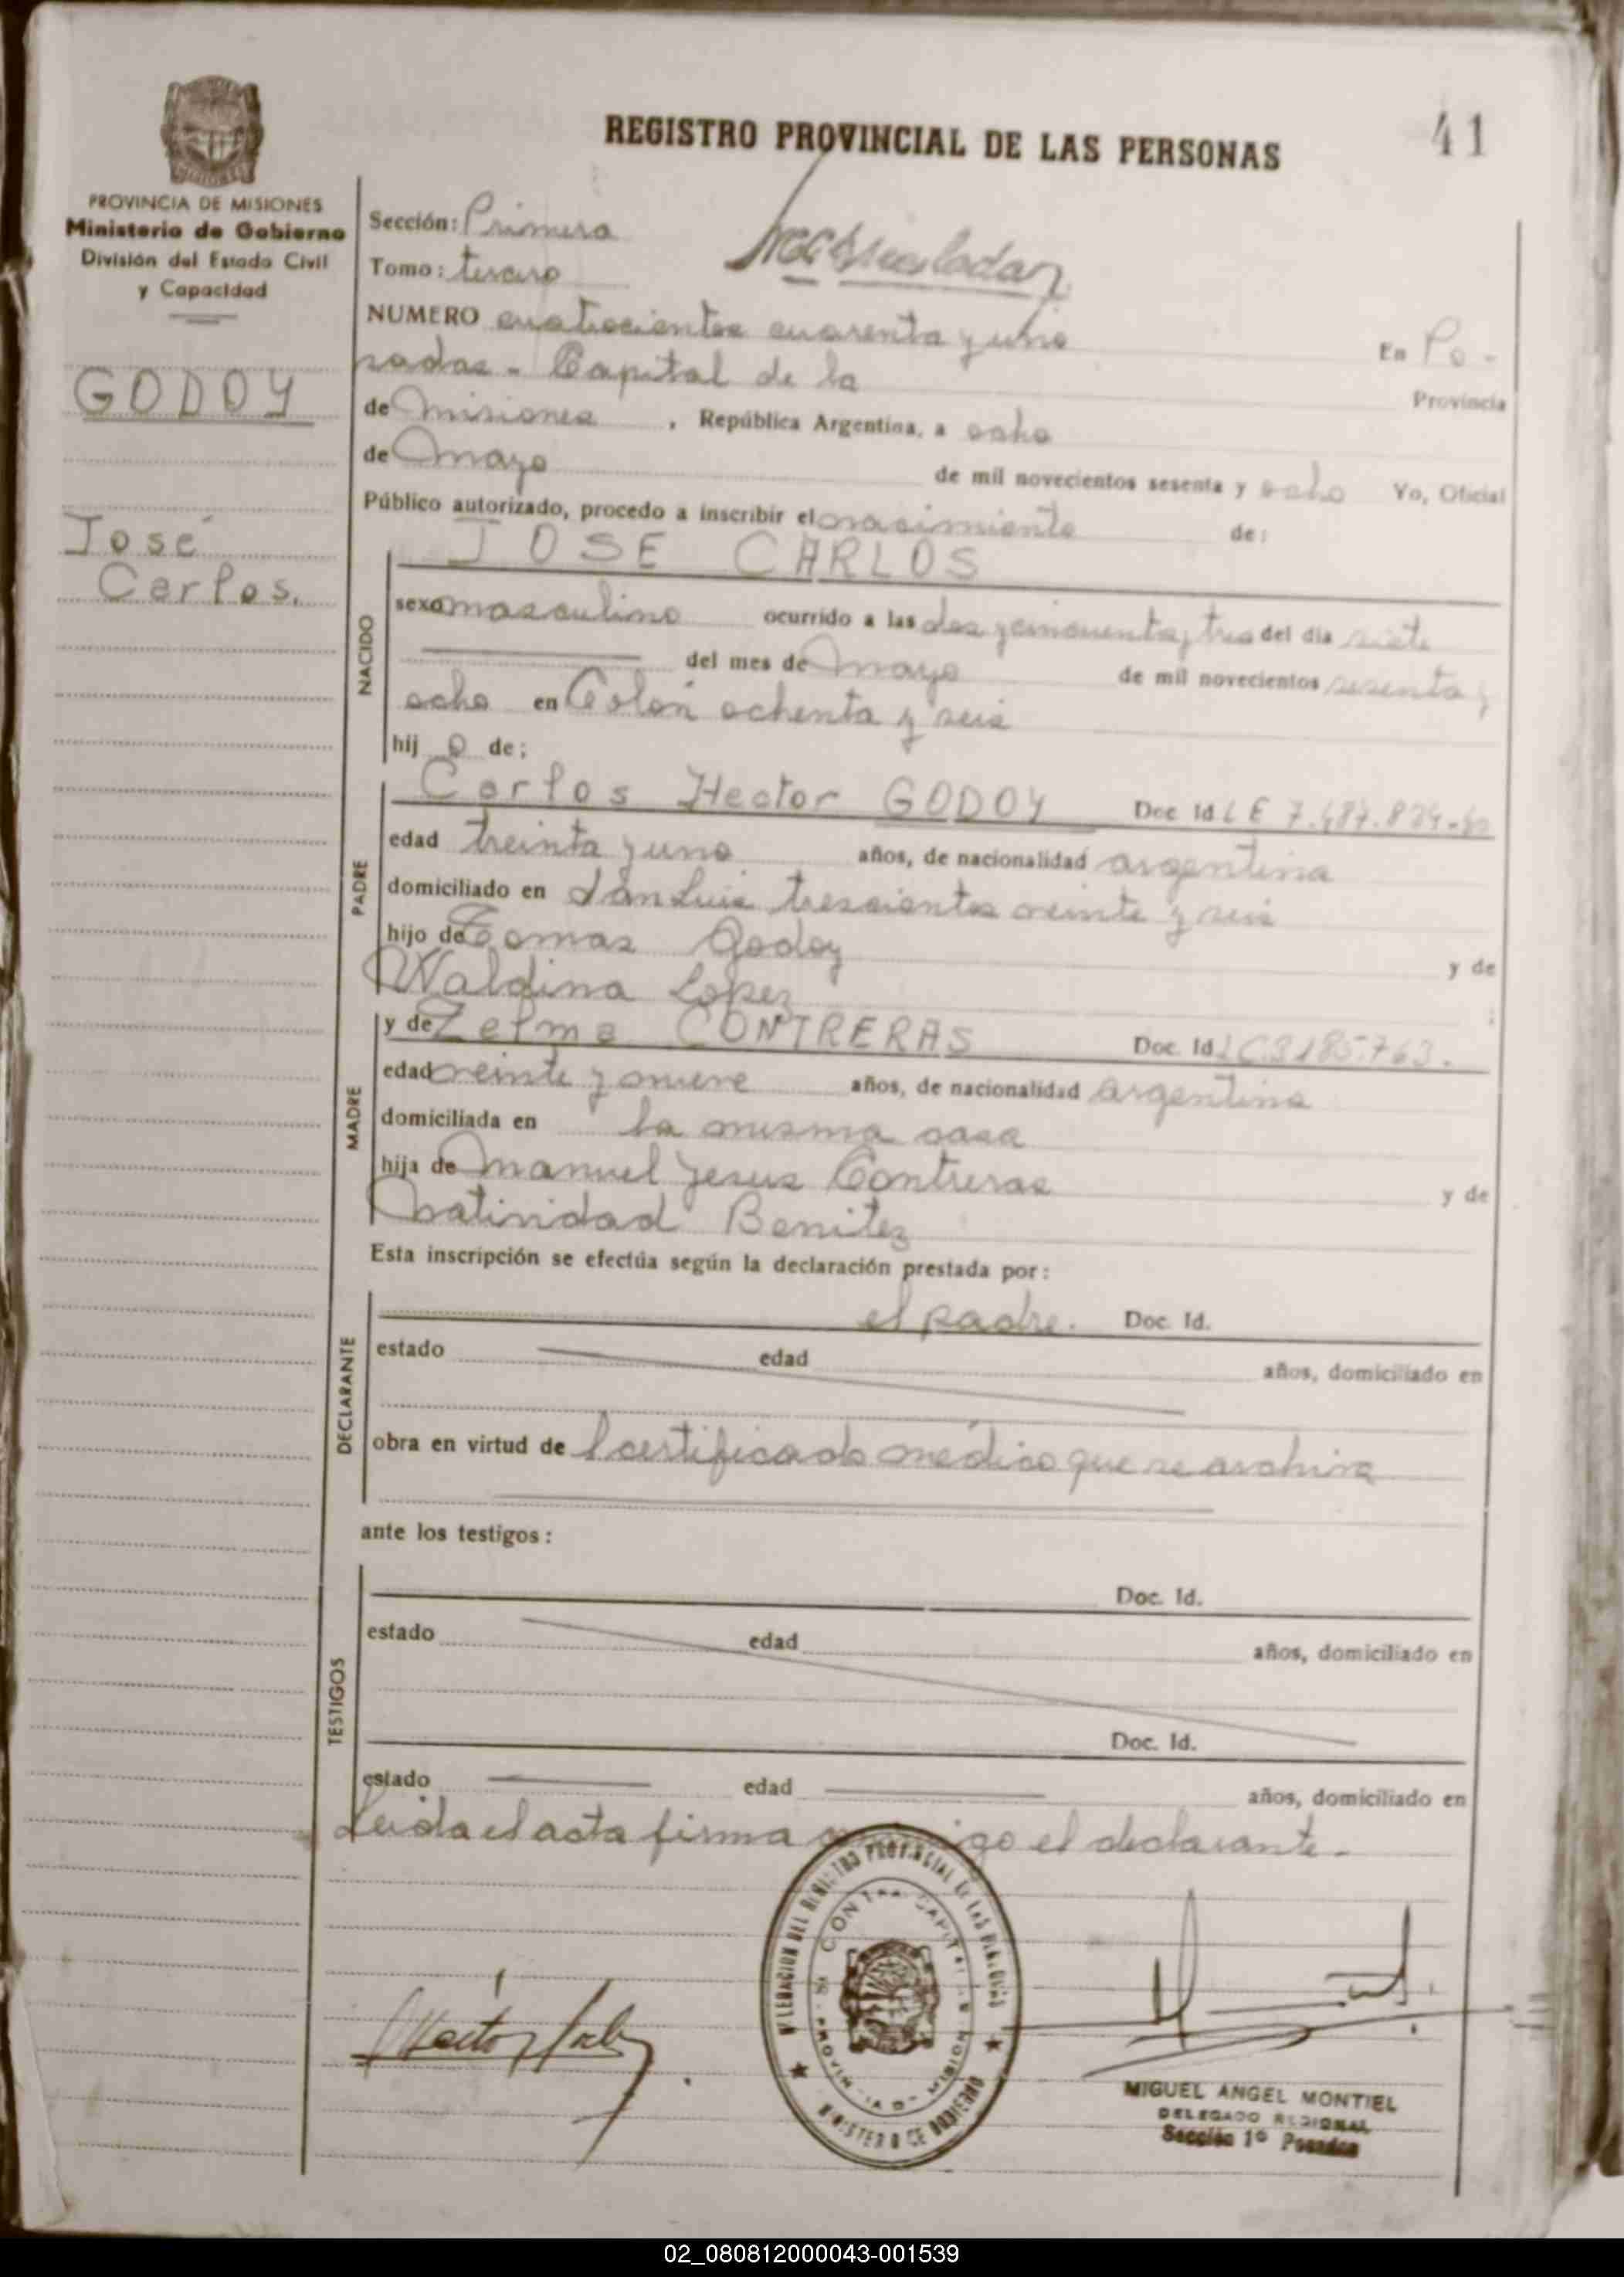 REGISTRO PROVINCIAL DE LAS PERSONAS
41
PROVINCIA DE MISIONES
Ministerio de Gobierno
División del Estado Civil
y Capacidad
GODOY
José
Carlos.
Sección: Primera
Tomo: tercero
NUMERO cuatrocientos cuarenta y uno En Po-
sadas - Capital de la Provincia
de Misiones, República Argentina, a ocho
de Mayo de mil novecientos sesenta y ocho Yo, Oficial
Público autorizado, procedo a inscribir el nacimiento de:
JOSE CARLOS
NACIDO
sexo masculino ocurrido a las dos y cincuenta y tres del día siete
del mes de Mayo de mil novecientos sesenta y
ocho en Colón ochenta y seis
hij o de;
PADRE
Carlos Hector GODOY Doc. Id. L E
edad treinta y uno años, de nacionalidad argentina
domiciliado en San Luis trescientos veinte y seis
hijo de Tomas Godoy y de
Waldina Lopez
MADRE
y de Zelma CONTRERAS Doc. Id. LC 3185.763.
edad veinte y nueve años, de nacionalidad argentina
domiciliada en la misma casa
hija de Manuel Jesus Contreras y de
Natividad Benitez
Esta inscripción se efectúa según la declaración prestada por:
DECLARANTE
el padre. Doc. Id.
estado edad años, domiciliado en
obra en virtud de l certificado médico que se archiva
ante los testigos:
TESTIGOS
Doc. Id.
estado edad años, domiciliado en
Doc. Id.
estado edad años, domiciliado en
Leida el acta firma el declarante.-
DELEGACION DEL REGISTRO PROVINCIAL DE LAS PERSONAS
MINISTERIO DE GOBIERNO
MIGUEL ANGEL MONTIEL
DELEGADO REGIONAL
Sección 1º Posadas
02_080812000043-001539